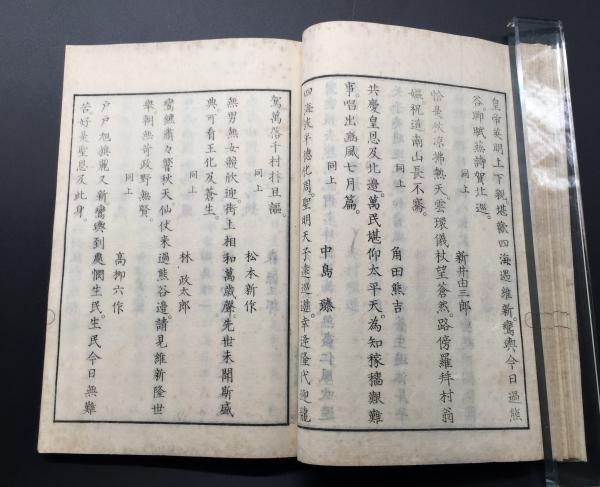 皇帝英明上下親。堪歡四海遇維新。鸞輿今日過熊
谷。聊賦蕪詩賀北巡。
同上　新井由三郎
恰是秋凉拂熱天。雲環儀杖望蒼然。路傍羅拜村翁
嫗。祝道南山長不騫。
同上　角田熊吉
共慶皇恩及北邊。萬民堪仰太平天。為知稼穡艱難
事。唱出豳風七月篇。
同上　中島　臻
四海波平德化周。聖明天子遠巡遊。幸逢隆代迎龍
駕。萬落千村拍且謳。
同上　松本新作
無男無女競欣迎。街上相和萬歲聲。先世未聞斯盛
典。可看王化及蒼生。
同上　林　政太郎
鸞鑣肅々響秋天。仙仗來過熊谷邊。請見維新隆世
舉。朝無前政野無賢。
同上　高柳六作
戶戶旭輿麗又新。鸞輿到處憫生民。生民今日無難
苦。好是聖恩及此身。